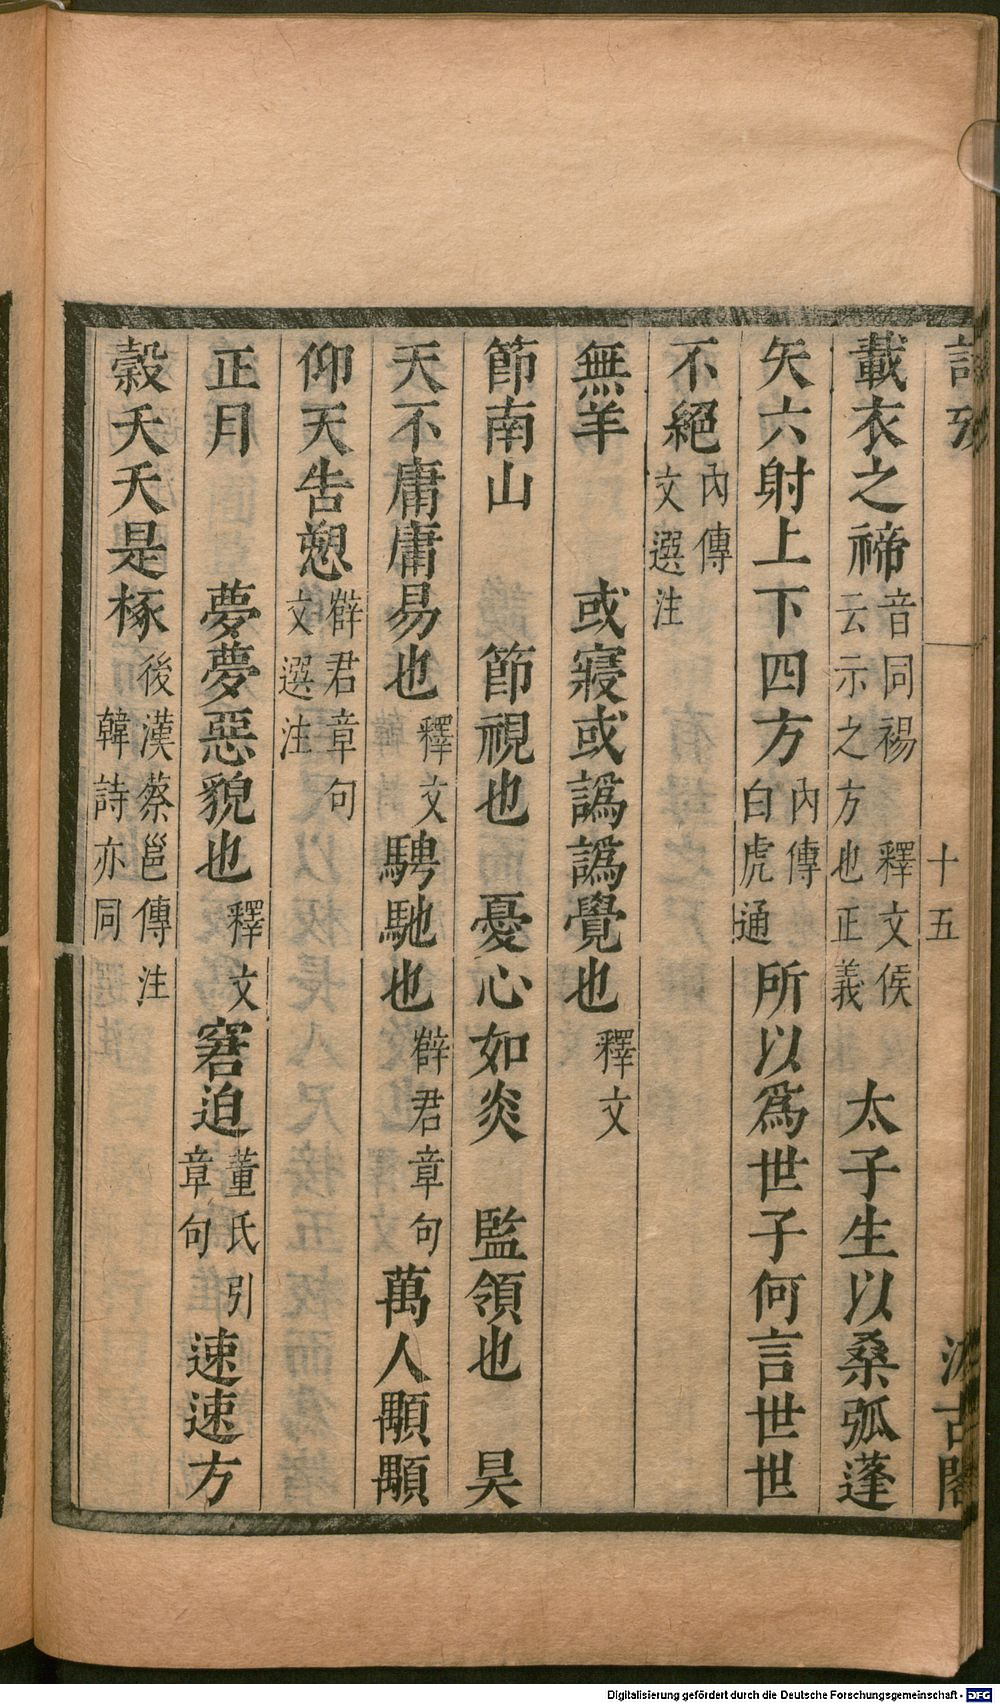 詩攷 十五 汲古閣
載衣之禘音同裼釋文侯云示之方也正義 太子生以桑弧蓬
矢六射上下四方內傳白虎通所以爲世子何言世世
不絕內傳文選注
無羊 或寢或譌譌覺也釋文
節南山 節視也 憂心如炎 監領也 昊
天不庸庸易也釋文騁馳也薛君章句萬人顒顒
仰天告愬薛君章句文選注
正月 夢夢惡貌也釋文窘迫董氏引章句速速方
穀夭夭是椓後漢蔡邕傳注韓詩亦同
Digitalisierung gefördert durch die Deutsche Forschungsgemeinschaft - DFG